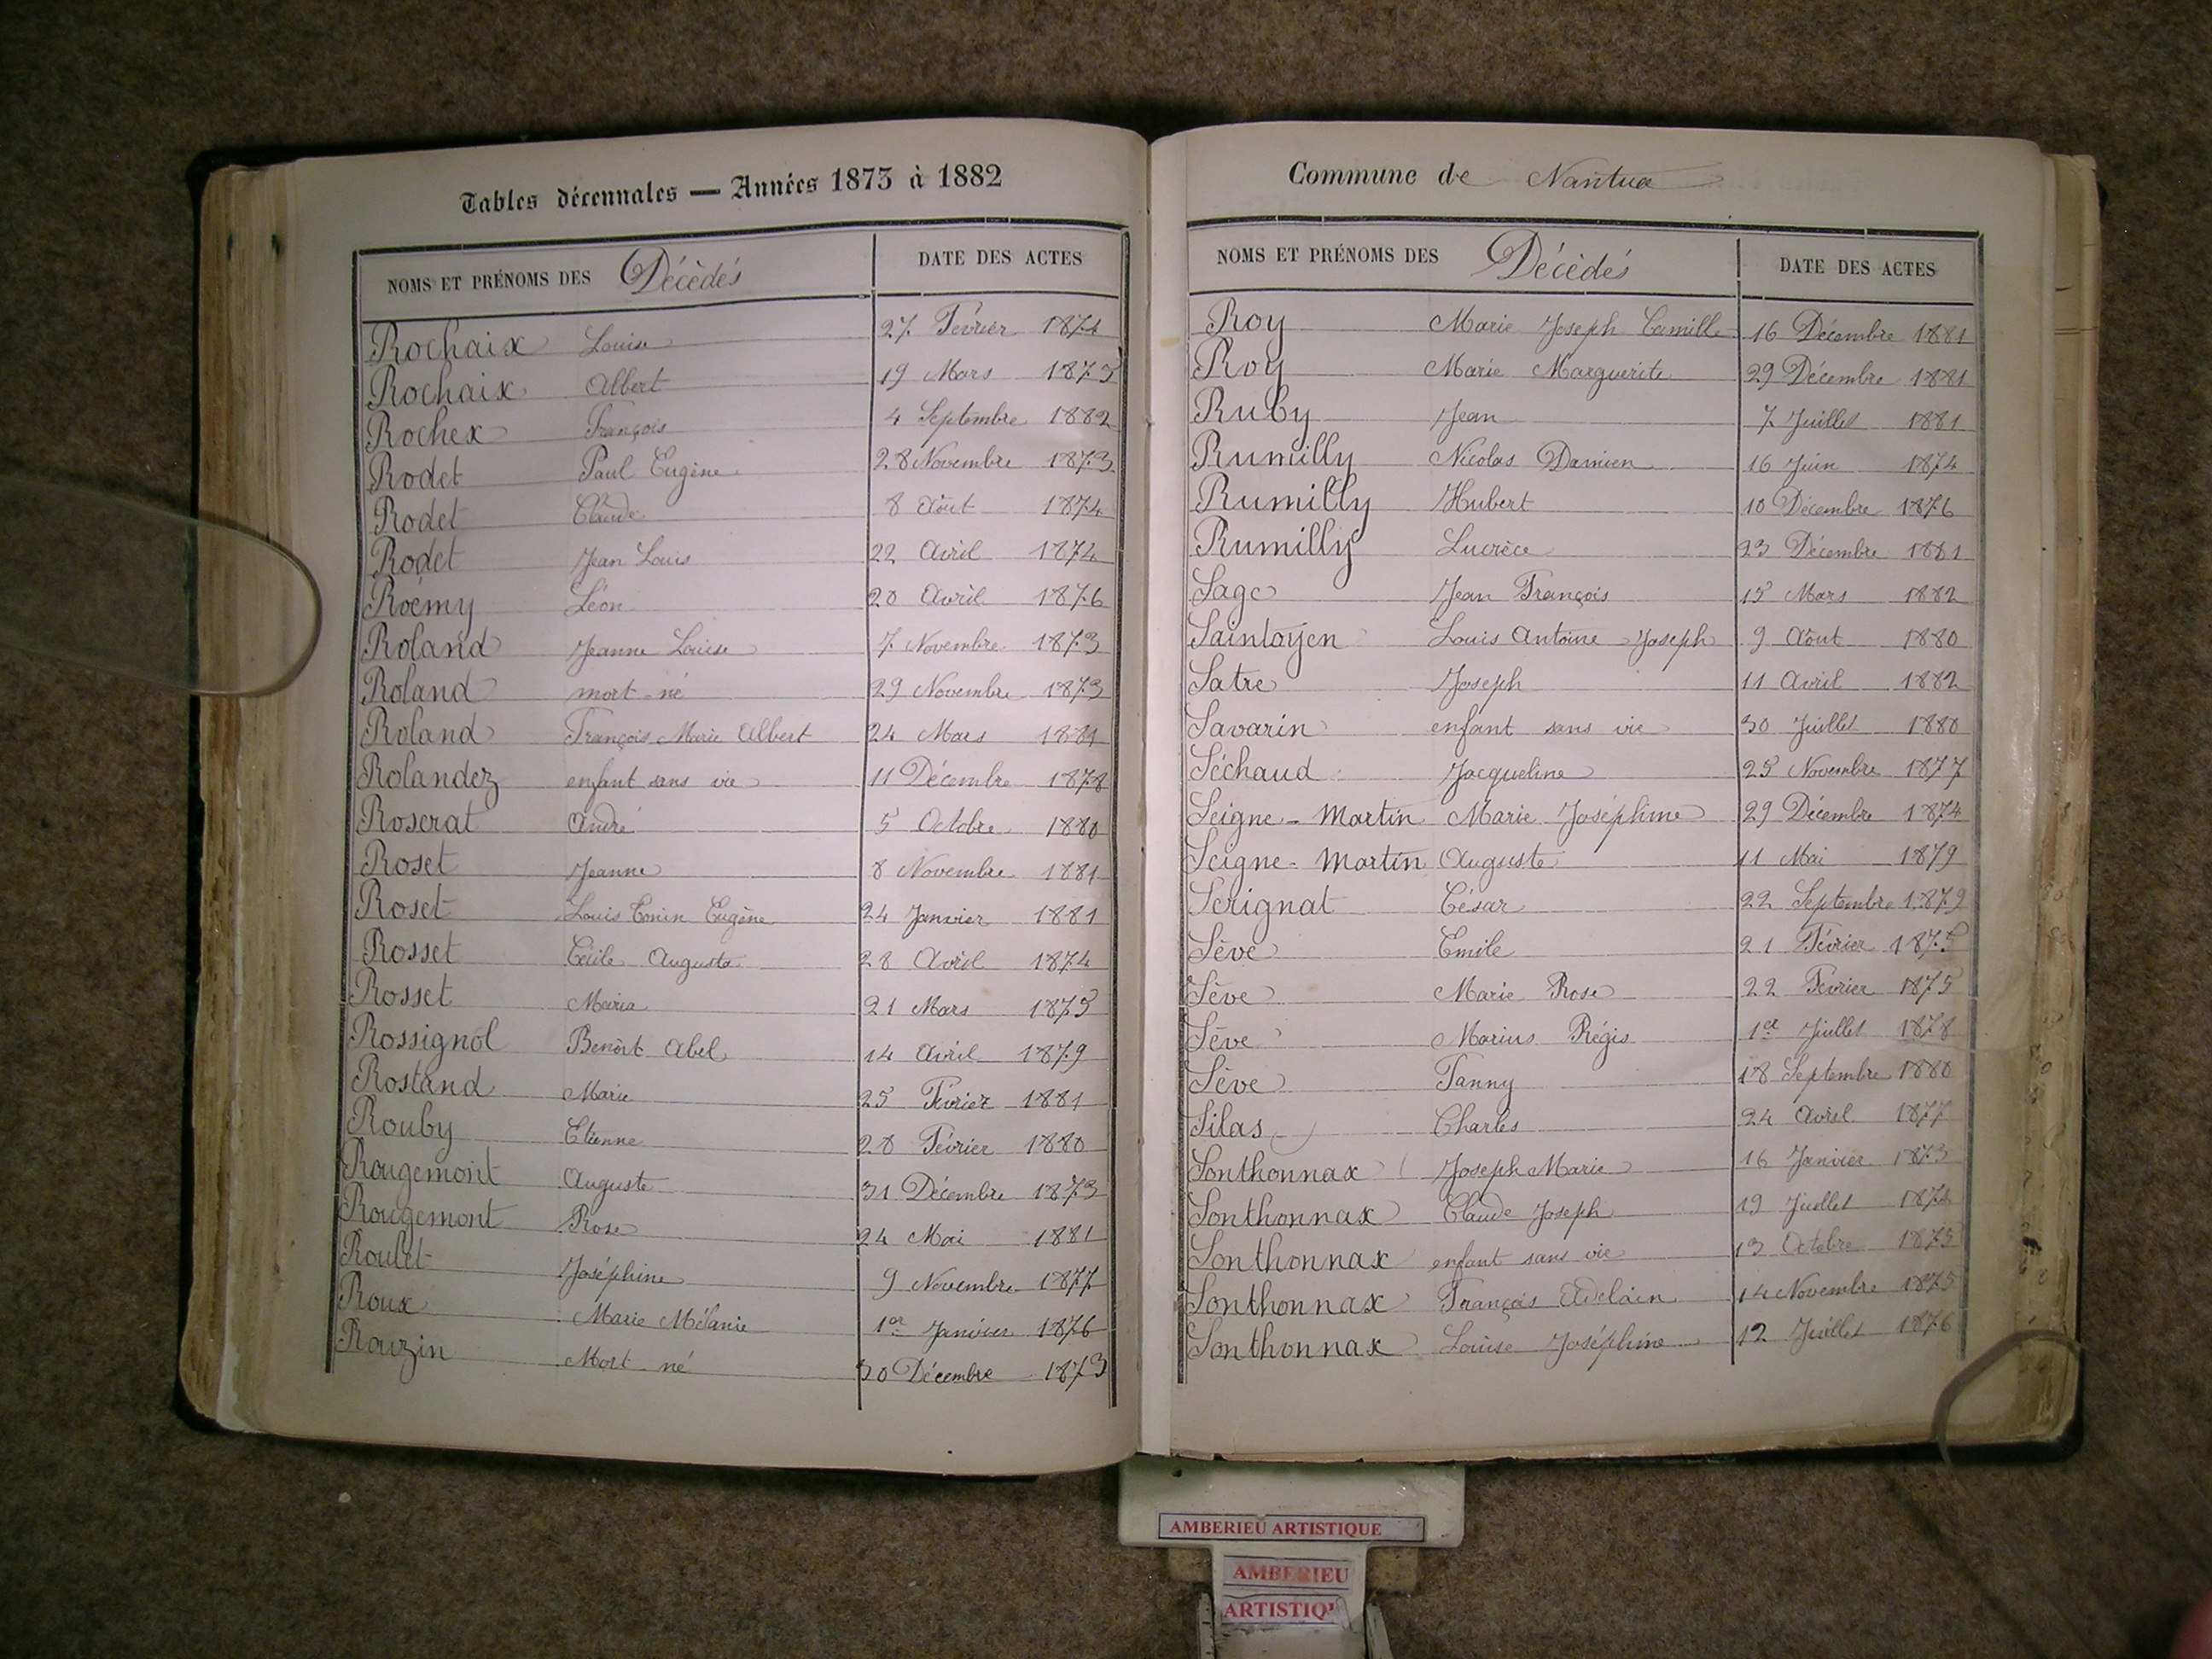 Tables décennales — Années 1873 à 1882
NOMS ET PRÉNOMS DES Décédés DATE DES ACTES
Rochaix Louise 27 Février 1874
Rochaix Albert 19 Mars 1875
Rochex François 4 Septembre 1882
Rodet Paul Eugène 28 Novembre 1873
Rodet Claude 8 Août 1874
Rodet Jean Louis 22 Avril 1874
Roëmy Léon 20 Avril 1876
Roland Jeanne Louise 7 Novembre 1873
Roland mort-né 29 Novembre 1873
Roland François Marie Albert 24 Mars 1881
Rolandez enfant sans vie 11 Décembre 1878
Roserat André 5 Octobre 1880
Roset Jeanne 8 Novembre 1881
Roset Louis Eugène 24 Janvier 1881
Rosset Cécile Augusta 28 Avril 1874
Rosset Maria 21 Mars 1875
Rossignol Benoit Abel 14 Avril 1879
Rostand Marie 25 Février 1881
Rouby Etienne 28 Février 1880
Rougemont Auguste 31 Décembre 1873
Rougemont Rose 24 Mai 1881
Roulet Joséphine 9 Novembre 1877
Roux Marie Mélanie 1er Janvier 1876
Rouzin Mort-né 30 Décembre 1873
Commune de Nantua
NOMS ET PRÉNOMS DES Décédés DATE DES ACTES
Roy Marie Joseph Camille 16 Décembre 1881
Roy Marie Marguerite 29 Décembre 1881
Ruby Jean 7 Juillet 1881
Rumilly Nicolas Damien 16 Juin 1874
Rumilly Hubert 10 Décembre 1876
Rumilly Lucrèce 23 Décembre 1881
Sage Jean François 15 Mars 1882
Saintoyen Louis Antoine Joseph 9 Août 1880
Satre Joseph 11 Avril 1882
Savarin enfant sans vie 30 Juillet 1880
Séchaud Jacqueline 25 Novembre 1877
Seigne-Martin Marie Joséphine 29 Décembre 1874
Seigne-Martin Auguste 11 Mai 1879
Serignat César 22 Septembre 1879
Sève Emile 21 Février 1875
Sève Marie Rose 22 Février 1875
Sève Marius Régis 1er Juillet 1878
Sève Fanny 18 Septembre 1880
Silas Charles 24 Avril 1877
Sonthonnax Joseph Marie 16 Janvier 1873
Sonthonnax Claude Joseph 19 Juillet
Sonthonnax enfant sans vie 13 Octobre 1875
Sonthonnax François Adelain 14 Novembre 1875
Sonthonnax Louise Joséphine 12 Juillet 1876
AMBERIEU ARTISTIQUE
AMBERIEU
ARTISTIQU